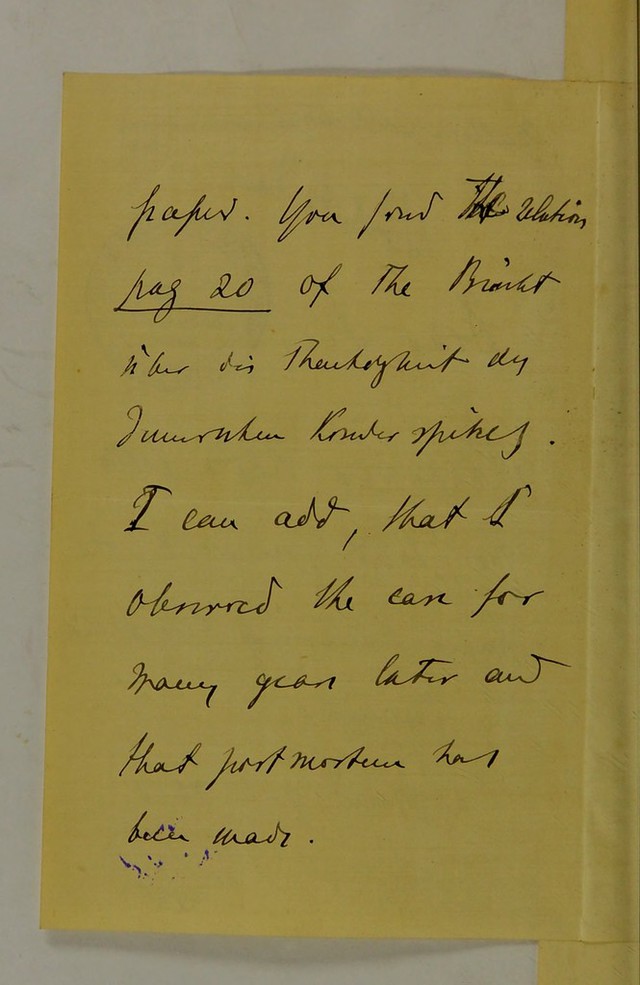 paper. You find the relation
pag 20 of the Bericht
über die Thaetigkeit des
Kinderspitals.
I can add, that I
observed the case for
many years later and
that post mortem has
been made.